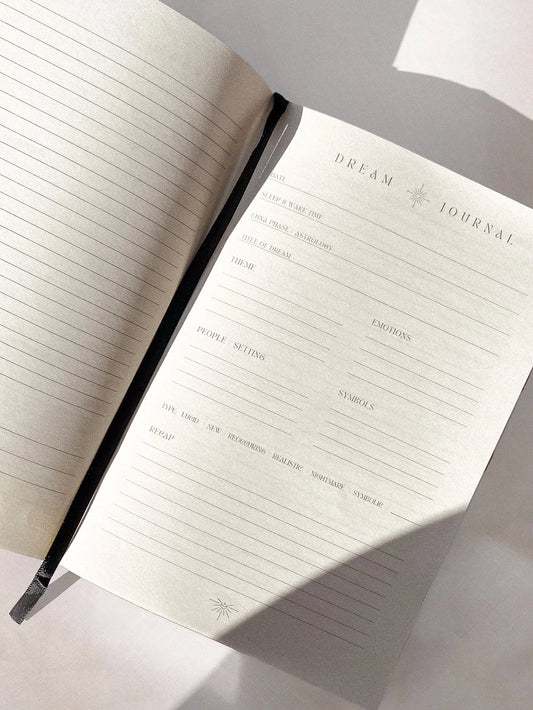 DREAM JOURNAL
DATE
SLEEP & WAKE TIME
LUNA PHASE ASTROLOGY
TITLE OF DREAM
THEME
EMOTIONS
PEOPLE SETTING
SYMBOLS
TYPE LUCID NEW RECCURRING REALISTIC NIGHTMARE SYMBOLIC
RECAP